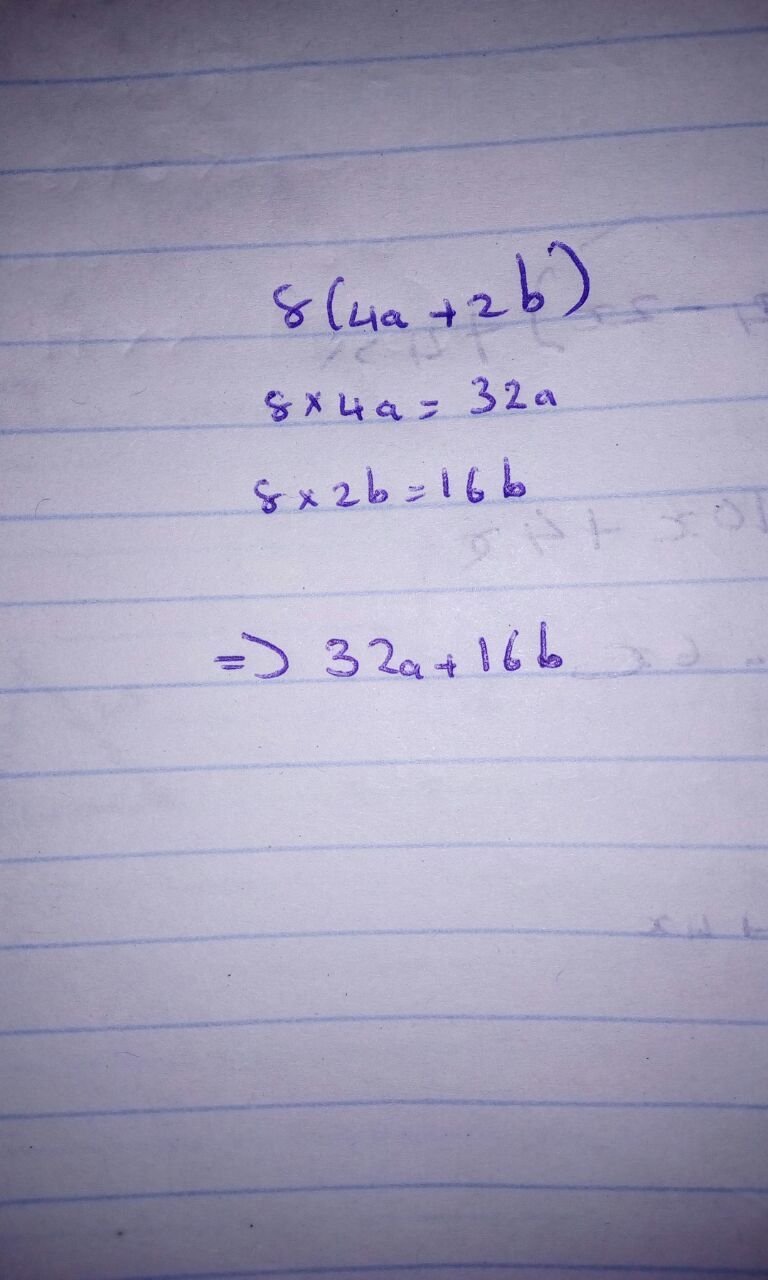 8(4a+2b)
8×4a=32a
8×2b=16b
=> 32a+16b